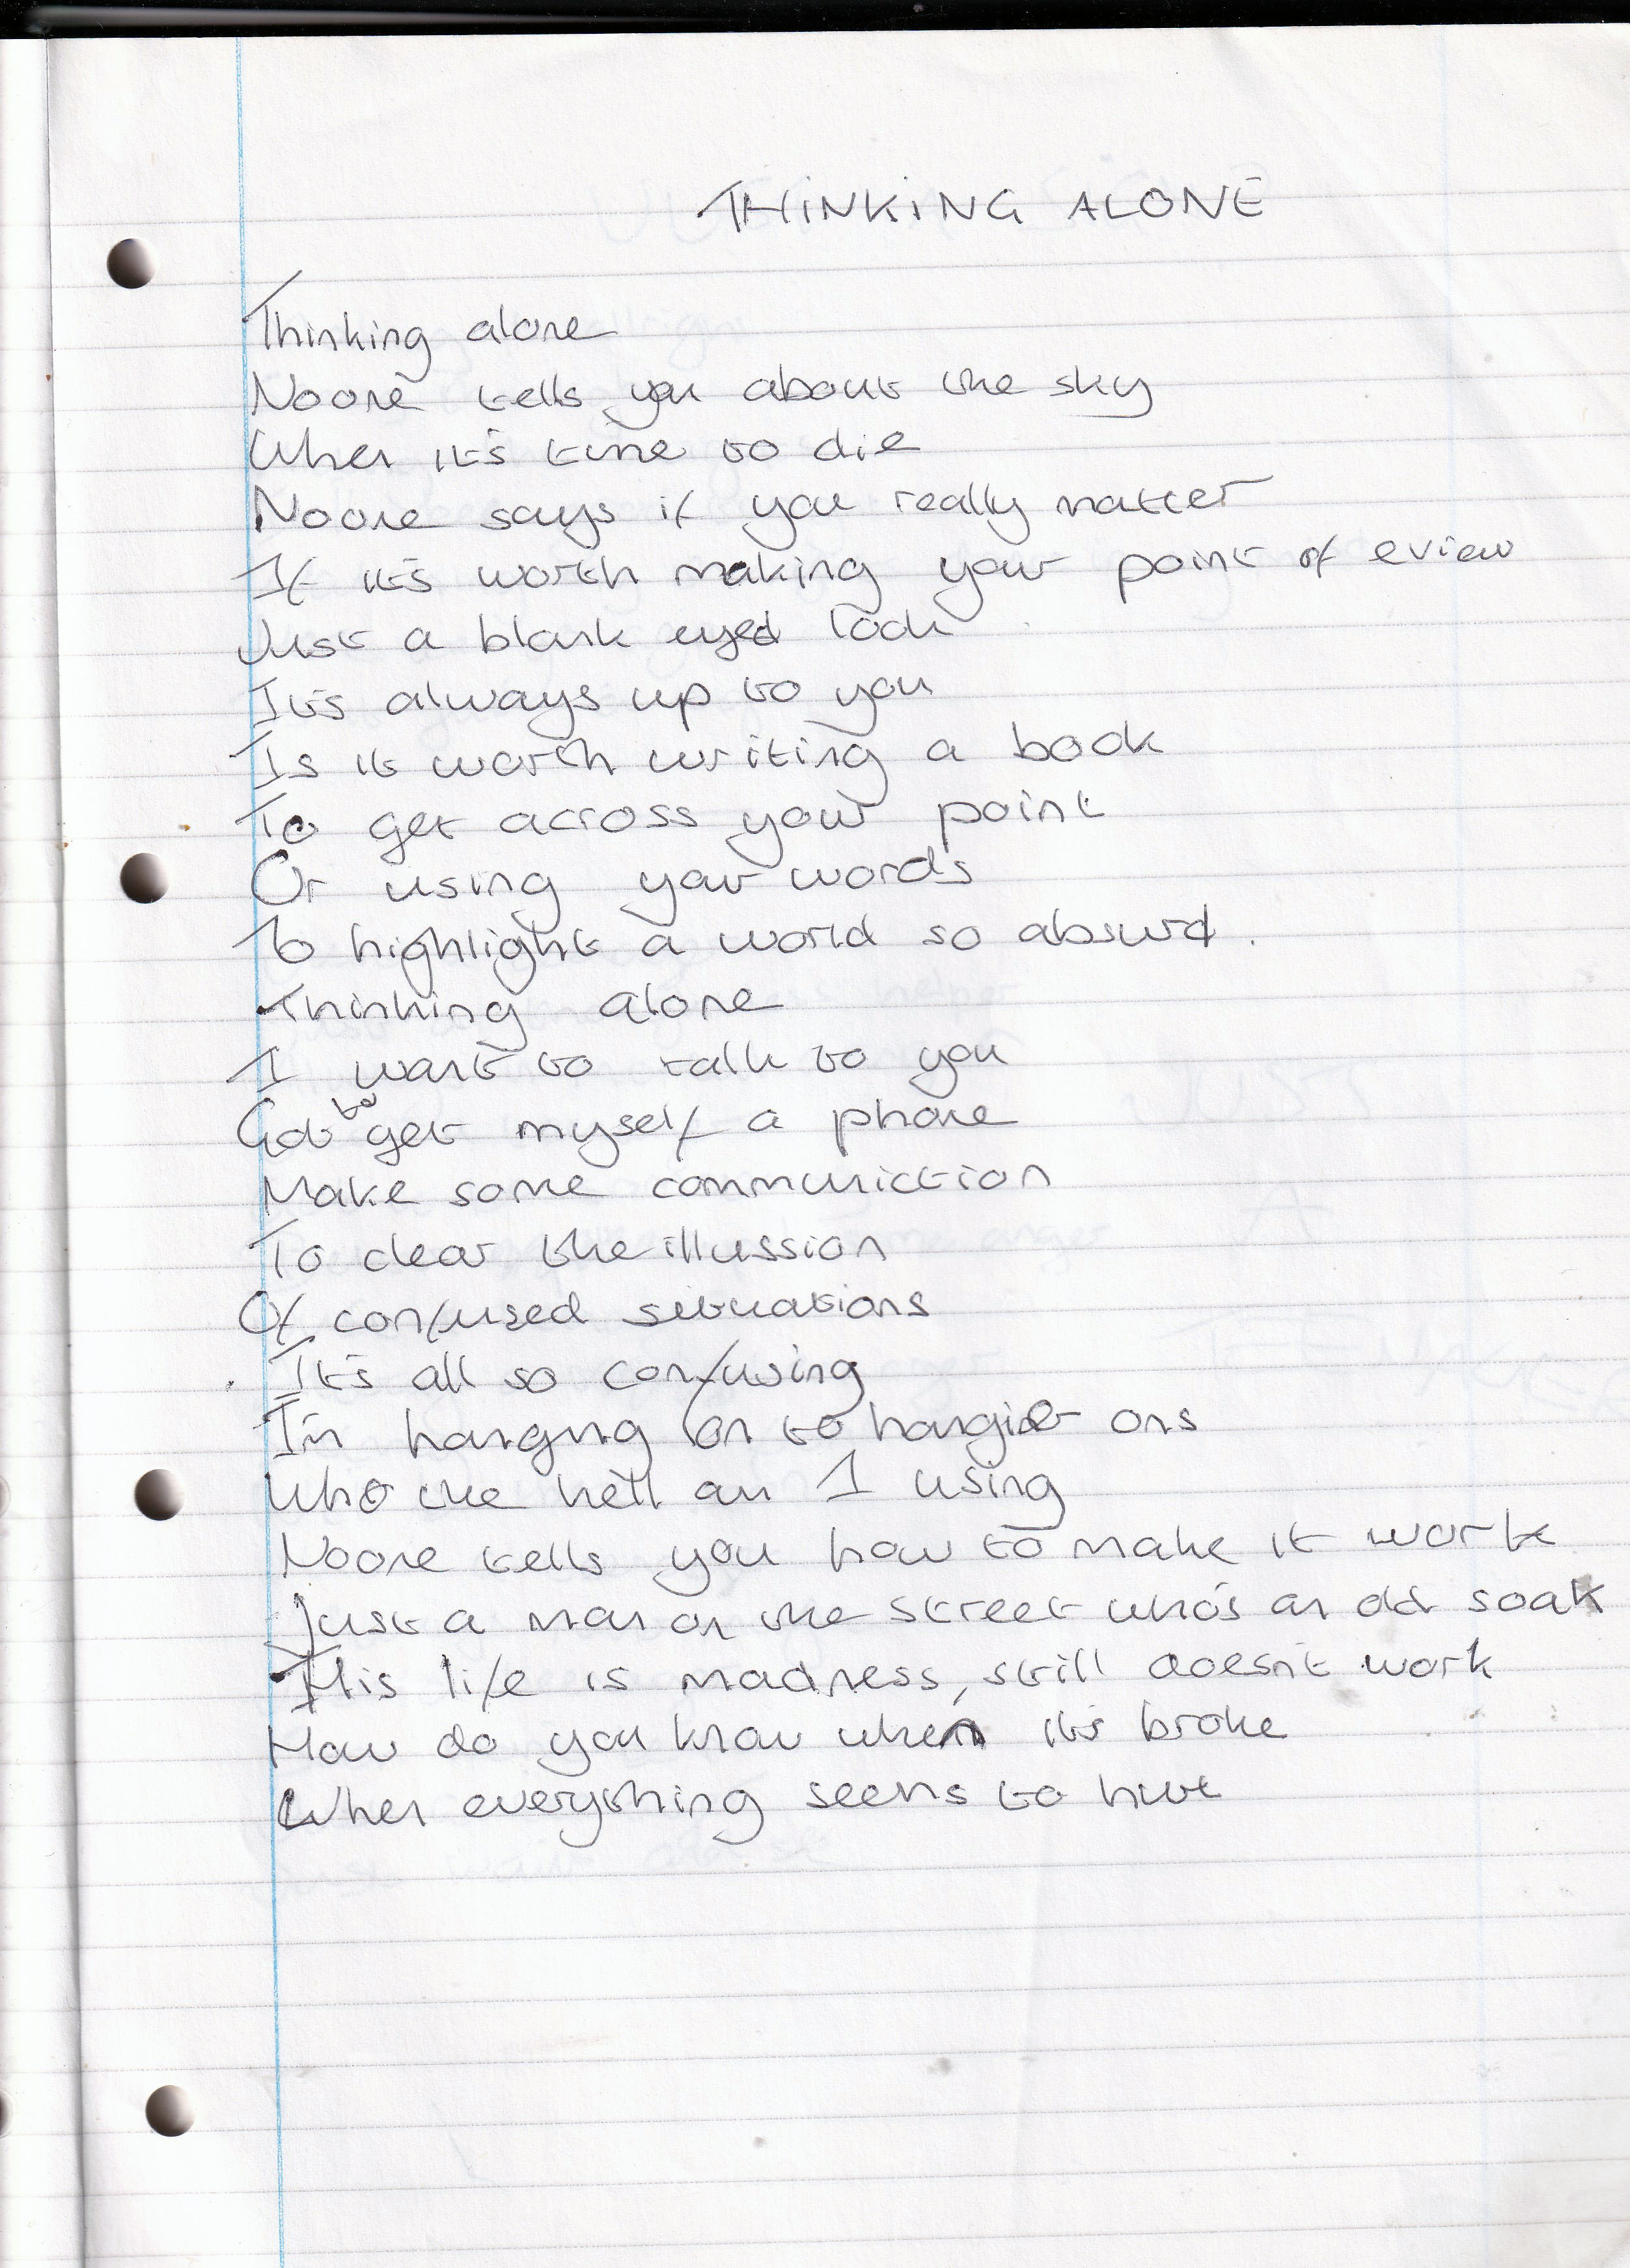 THINKING ALONE
Thinking alone
Noone tells you about the sky
When it's time to die
Noone says if you really matter
If it's worth making your point of eview
Just a blank eyed look
It's always up to you
Is it worth writing a book
To get across your point
Or using your words
To highlight a world so absurd.
Thinking alone
I want to talk to you
Got to get myself a phone
Make some communiction
To clear the illussion
Of confused situations
It's all so confusing
I'm hanging on to ons
Who the hell am I using
Noone tells you how to make it work
Just a man on the street who's an old soak
This life is madness, still doesn't work
How do you know when it's broke
When everything seems to hurt